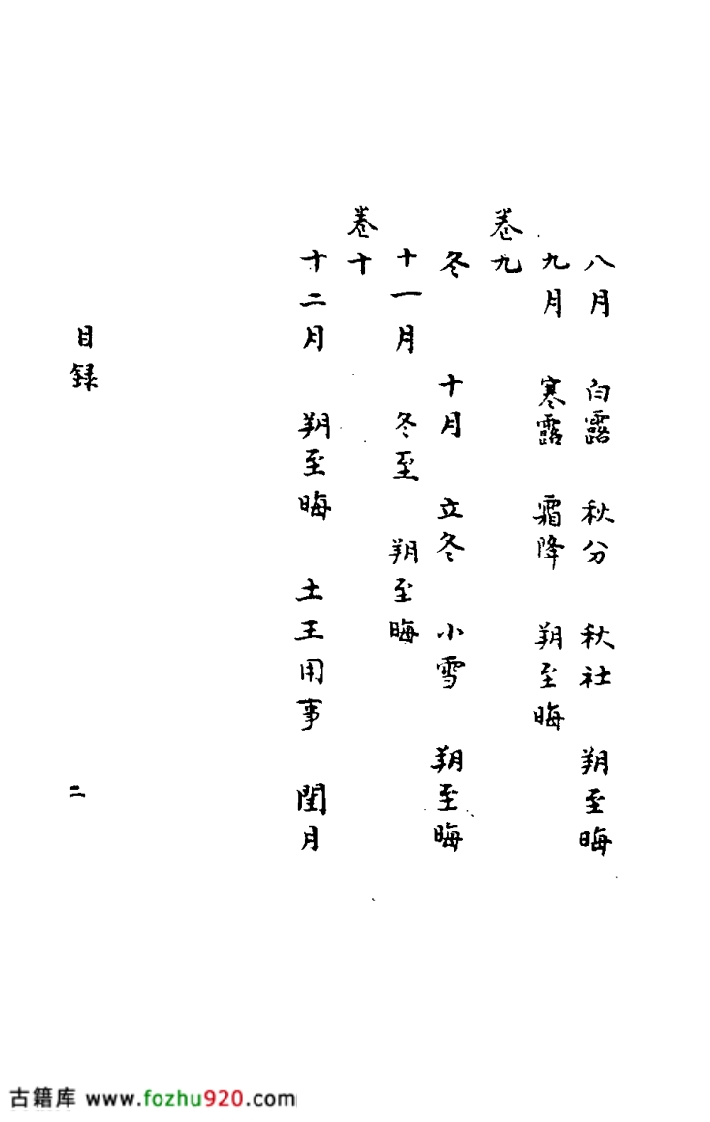 八月 白露 秋分 秋社 朔至晦
九月 寒露 霜降 朔至晦
卷九
冬 十月 立冬 小雪 朔至晦
十一月 冬至 朔至晦
卷十
十二月 朔至晦 土王用事 閏月
目録 二
古籍库 www.fozhu920.com